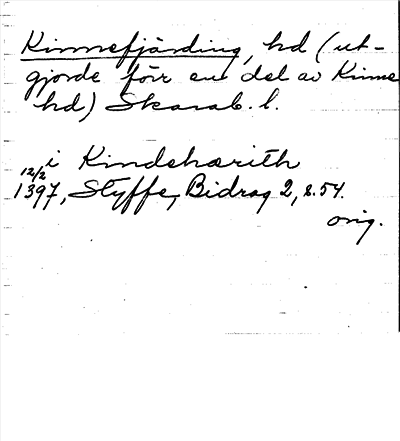 Kinnefjärding, hd (ut-
gjorde förr en del av Kinne
hd) Skarab. l.
i Kindehærith
12/2 1397, Styffe, Bidrag 2, s. 54.
orig.